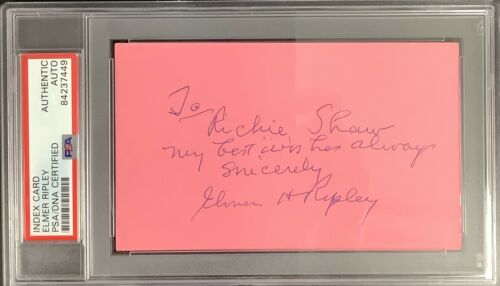 INDEX CARD
ELMER RIPLEY
PSA/DNA CERTIFIED
AUTHENTIC
AUTO
84237449
PSA
To
Richie Shaw
my best wishes always
Sincerely
Elmer H Ripley